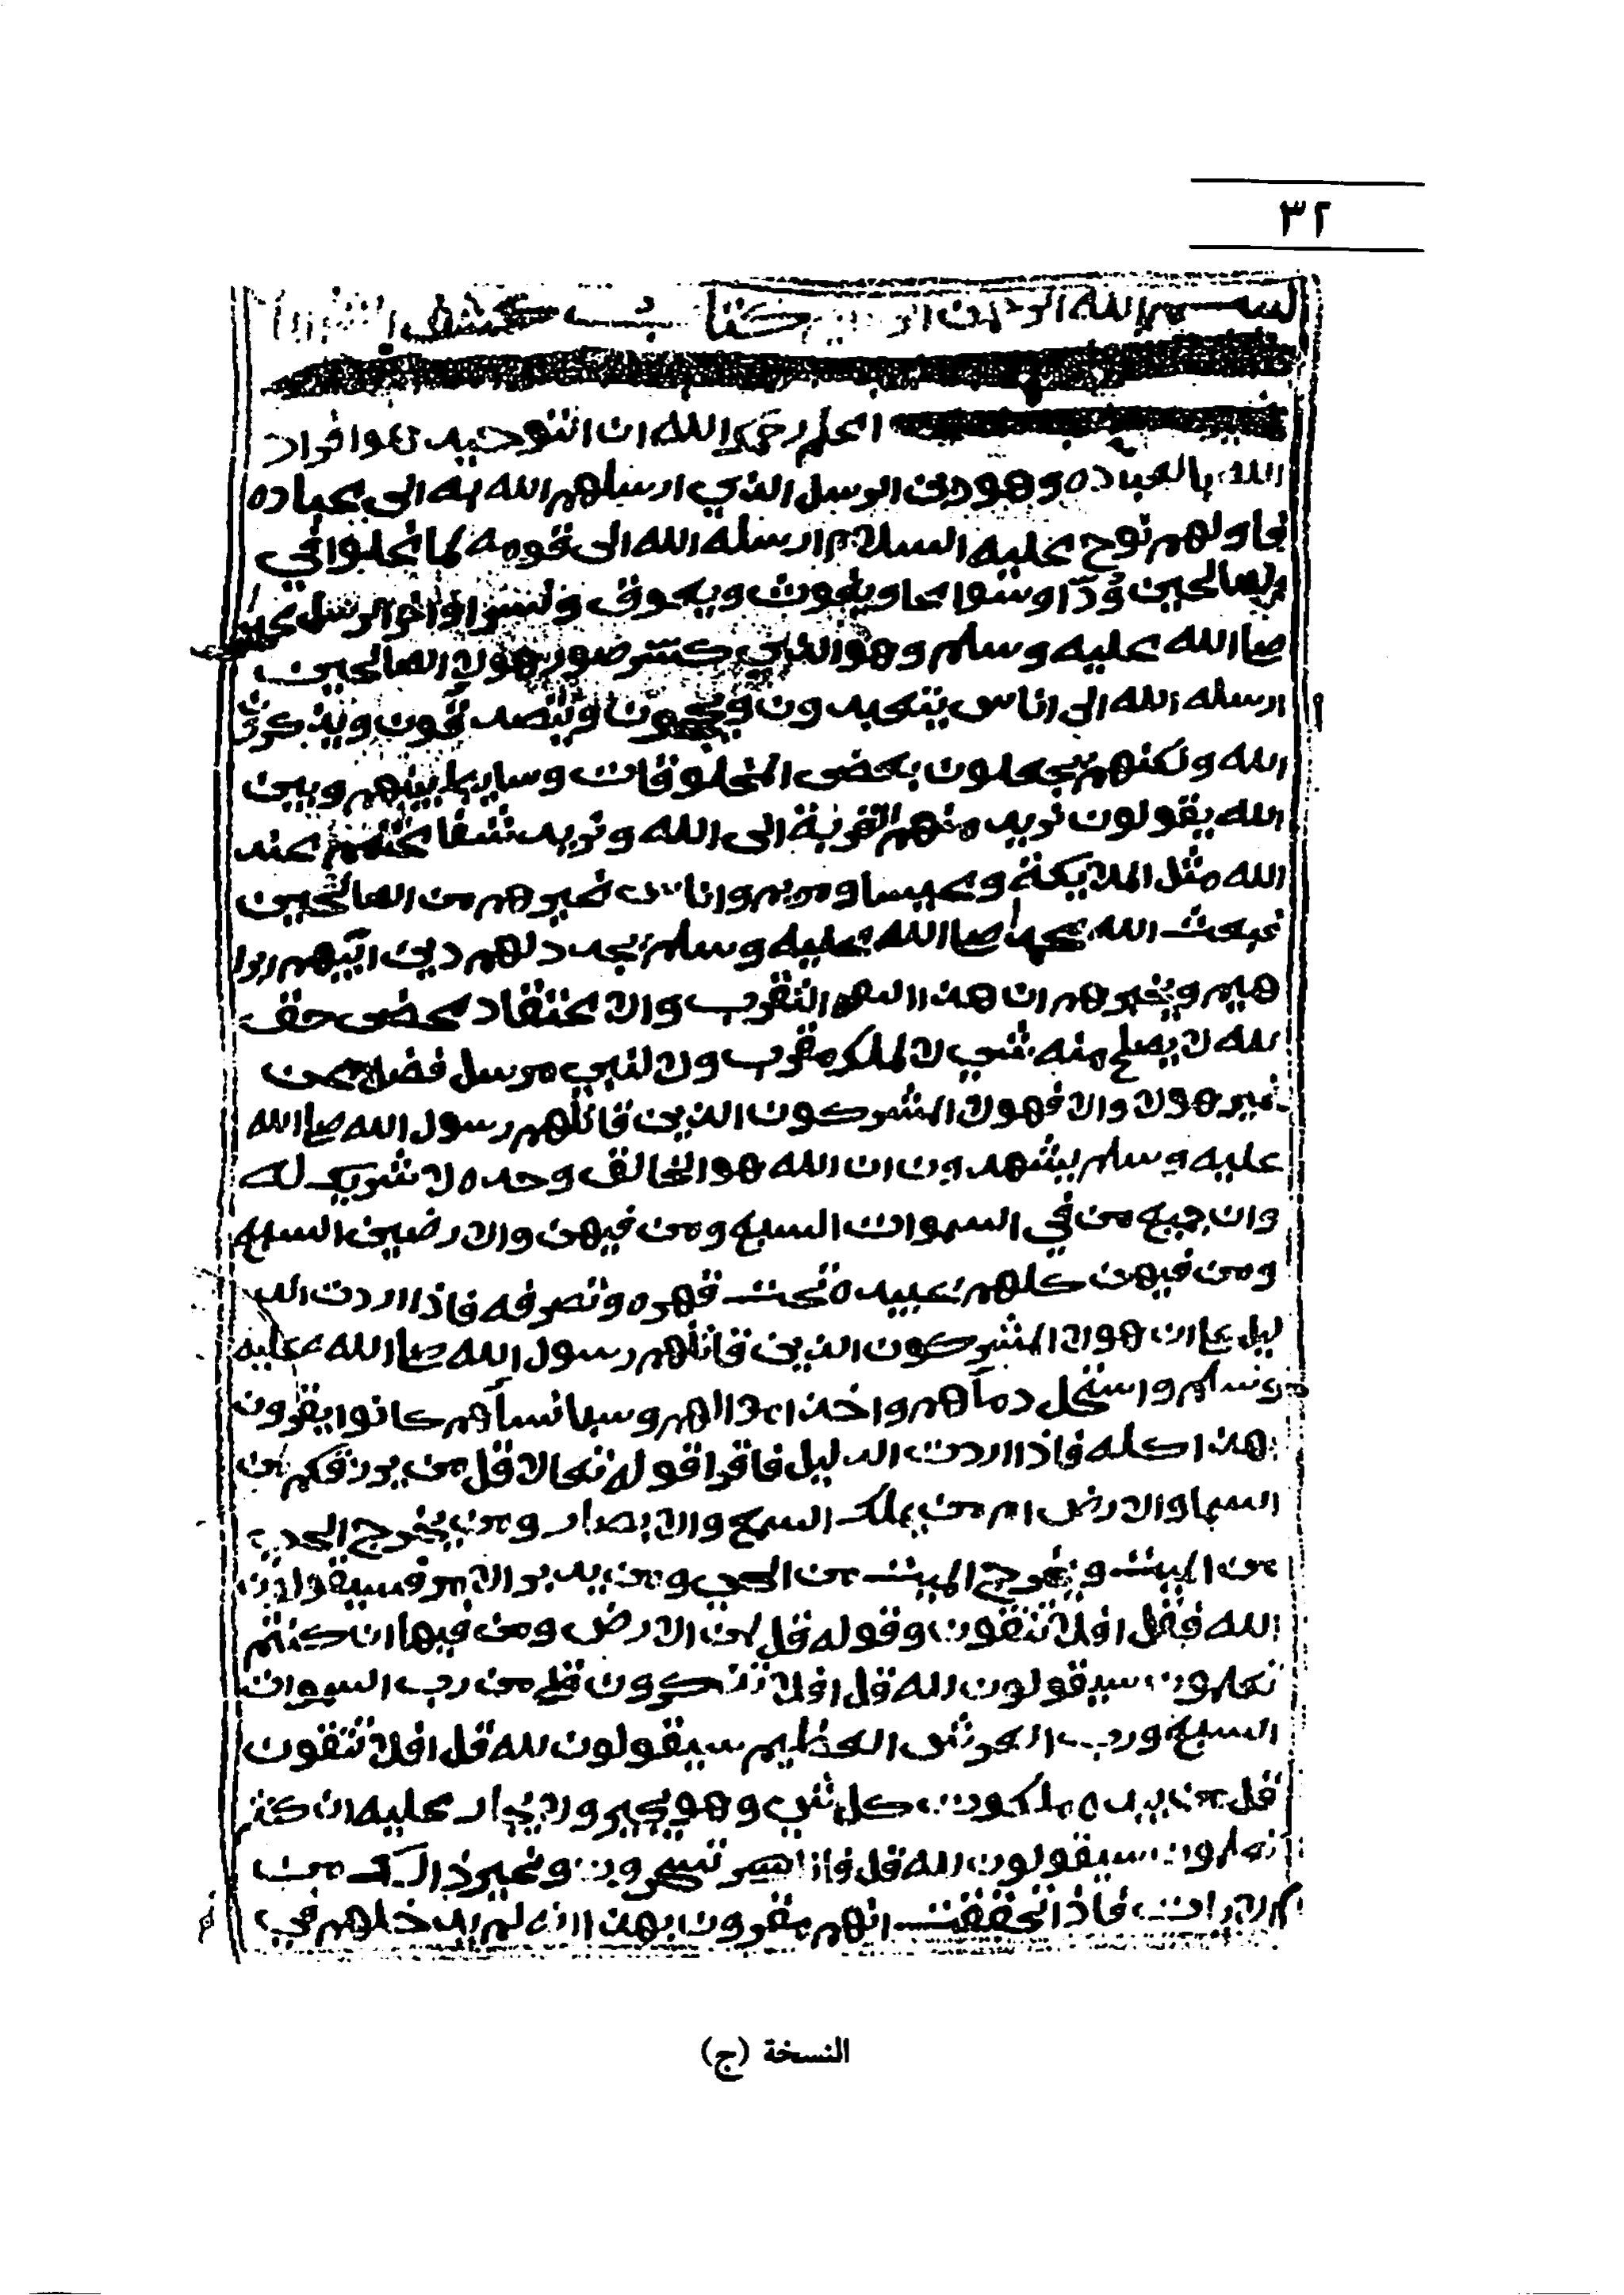 ٣٢
بسم الله الرحمن الرحيم كتاب كشف
اعلم رحمك الله ان التوحيد هوا فراد
الله بالعباده وهو دين الرسل الذي ارسلهم الله به الى عباده
فاولهم نوح عليه السلام ارسله الله الى قومه لما غلوا في
الصالحين ودّا وسواعا ويغوث ويعوق ونسرا واخر الرسل محمد
صلا الله عليه وسلم وهو الذي كسر صور هولا الصالحين
ارسله الله الى اناس يتعبدون ويحجون ويتصدقون ويذكرون
الله ولكنهم يجعلون بعض المخلوقات وسايط بينهم وبين
الله يقولون نريد منهم القربة الى الله ونريد شفاعتهم عند
الله مثل الملايكة وعيسا ومريم واناس غيرهم من الصالحين
فبعث الله محمدا صلا الله عليه وسلم يجدد لهم دين ابيهم ابرا
هيم ويخبرهم ان هذا التقرب والاعتقاد محض حق
لله لا يصلح منه شي لا لملك مقرب ولا لنبي مرسل فضلا عن
غيرهولا والا فهولا المشركون الذين قاتلهم رسول الله صلا الله
عليه وسلم يشهدون ان الله هو الخالق وحده لا شريك له
وان جميع من في السموات السبع ومن فيهن والارضين السبع
ومن فيهن كلهم عبيده تحت قهره وتصرفه فاذا اردت الد
ليل علا ان هولا المشركون الذين قاتلهم رسول الله صلا الله عليه
وسلم واستحل دمآهم واخذ اموالهم وسبا نسآهم كانوا يقرون
بهذا كله فاذا اردت الدليل فاقرا قوله تعالا قل من يرزقكم من
السما والارض ام من يملك السمع والابصار ومن يخرج الحي
من الميت ويخرج الميت من الحي ومن يدبر الامر فسيقولون
الله فقل افلا تتقون وقوله قل لمن الارض ومن فيها ان كنتم
تعلمون سيقولون لله قل افلا تذكرون قل من رب السموات
السبع ورب العرش العظيم سيقولون لله قل افلا تتقون
قل من بيده ملكوت كل شي وهو يجير ولا يجار عليه ان كنتم
تعلمون سيقولون لله قل فانا تسحرون وغير ذالك من
الايات فاذا تحققت انهم مقرون بهذا انه لم يدخلهم في
النسخة (ج)